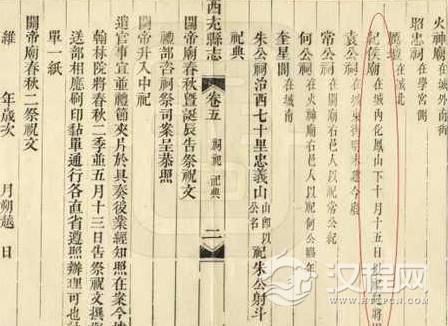 火神廟在城外南街
昭忠祠在學宮側
厲壇在城北
紀侯廟在城内化鳳山下十月十五日
袁公祠
常公祠在關廟右邑人以祀常公紀
何公祠在火神廟右邑人以祀何公
奎星閣在城南
朱公祠治西七十里忠義山山即以公名祀朱公射斗
祀典
西充縣志
卷五
祠祀 祀典
二
關帝廟春秋暨誕辰告祭祝文
禮部咨祠祭司案呈恭照
關帝升入中祀
遵官事宜並禮節夾片於具奏後業經知照在案今
翰林院將春秋二季並五月十三日告祭祝文撰
送部相應刷印黏單通行各直省遵照辦理可也
單一紙
關帝廟春秋二祭祝文
維 年歲次 月朔越 日
汉程网
httpcn.com